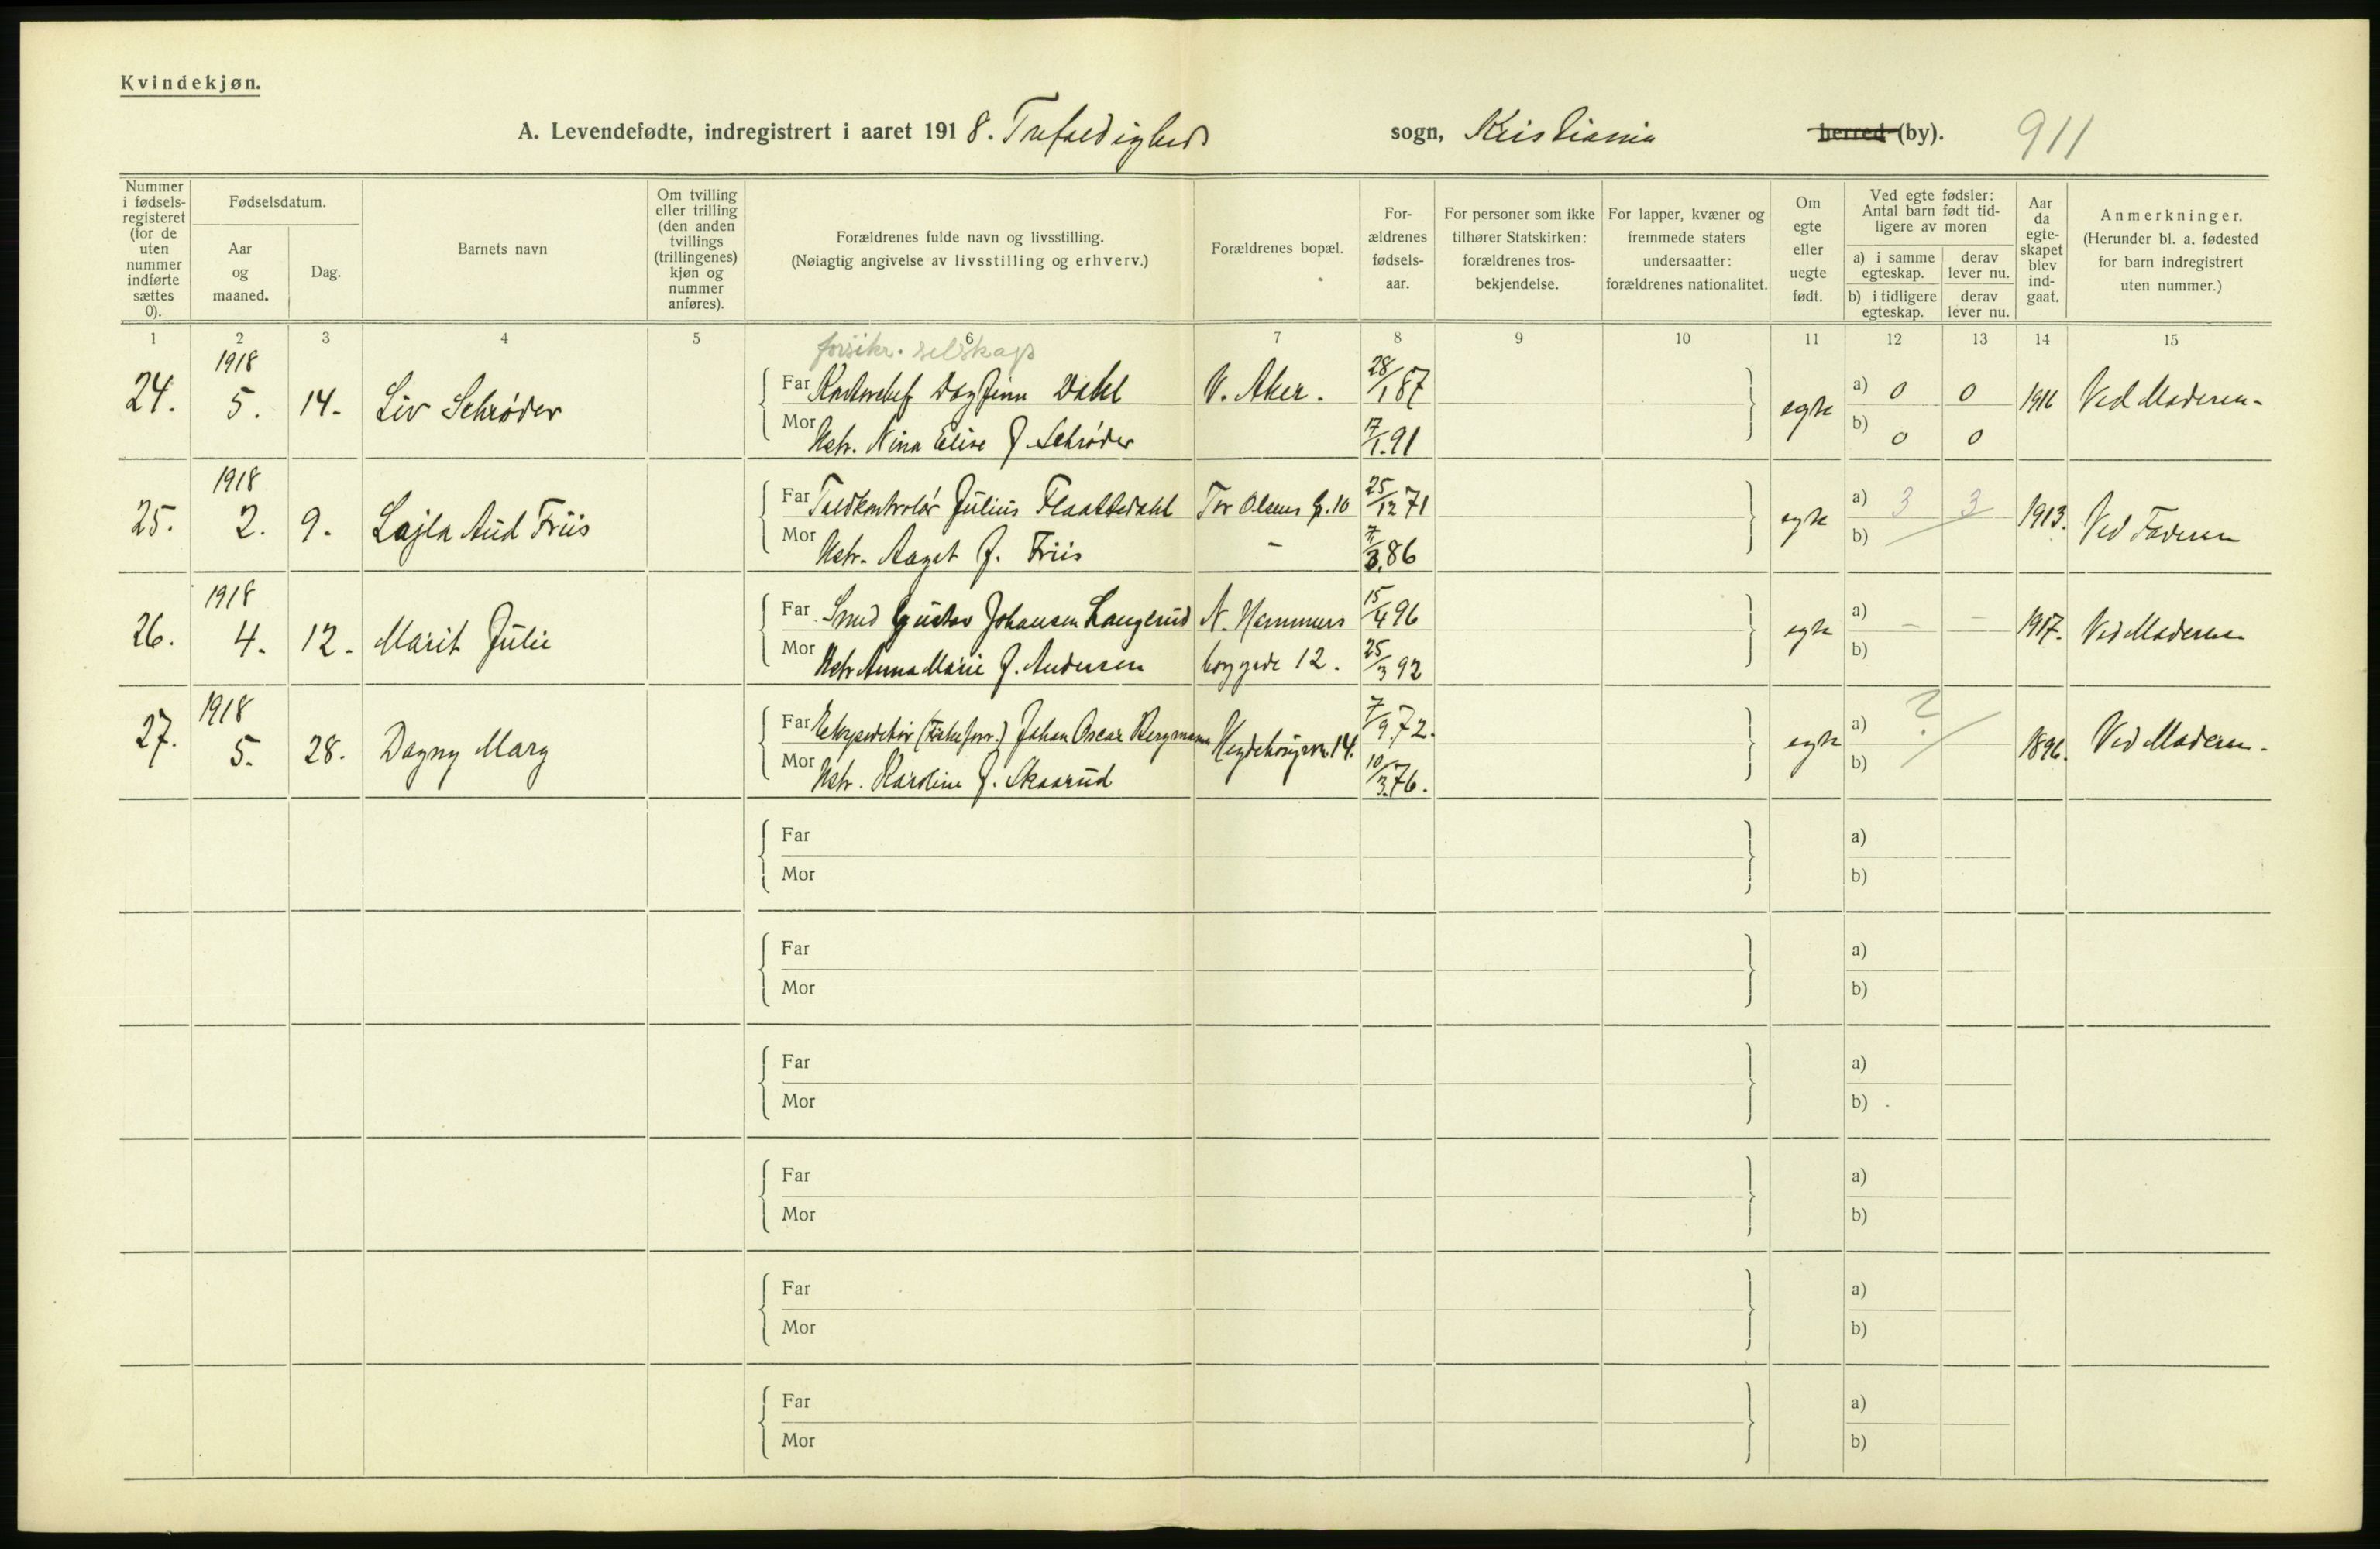 Kvindekjøn.
A. Levendefødte, indregistrert i aaret 1918. Trefoldigheds sogn, Kristiania herred (by). 911
Nummer i fødsels-registeret (for de uten nummer indførte sættes 0).
Fødselsdatum.
Aar og maaned.
Dag.
Barnets navn
Om tvilling eller trilling (den anden tvillings (trillingenes) kjøn og nummer anføres).
Forældrenes fulde navn og livsstilling.
(Nøiagtig angivelse av livsstilling og erhverv.)
Forældrenes bopæl.
For-ældrenes fødsels-aar.
For personer som ikke tilhører Statskirken: forældrenes tros-bekjendelse.
For lapper, kvæner og fremmede staters undersaatter: forældrenes nationalitet.
Om egte eller uegte født.
Ved egte fødsler: Antal barn født tid-ligere av moren
a) i samme egteskap.
derav lever nu.
b) i tidligere egteskap.
derav lever nu.
Aar da egte-skapet blev ind-gaat.
Anmerkninger.
(Herunder bl. a. fødested for barn indregistrert uten nummer.)
1 2 3 4 5 6 7 8 9 10 11 12 13 14 15
forsikr. selskap
1918
24. 5. 14. Liv Schrøder Far Kontorchef Dagfinn Dahl V. Aker. 28/1 87 egte a) 0 0 1916 Ved Moderen
Mor Hstr. Nina Elise f. Schrøder 7/1. 91 b) 0 0
1918
25. 2. 9. Lajla Aud Friis Far Toldkontrolør Julius Flaattedahl Tor Olsens g. 10 25/12 71 egte a) 3 3 1913. Ved Faderen
Mor Hstr. Aagot f. Friis - 7/3. 86 b)
1918
26. 4. 12. Marit Julie Far Smed Gustav Johansen Langerud N. Hammers 15/4 96 egte a) - - 1917. Ved Moderen
Mor Hstr Anna Marie f. Andersen borggade 12. 25/3 92 b)
1918
27. 5. 28. Dagny Mary Far Ekspeditør (Fiskeforr.) Johan Oscar Bergmann Hegdehaugsv. 14. 7/9. 72. egte a) ? 1896. Ved Moderen
Mor Hstr. Karoline f. Skaarud 10/3. 76. b)
Far a)
Mor b)
Far a)
Mor b)
Far a)
Mor b)
Far a)
Mor b)
Far a)
Mor b)
Far a)
Mor b)